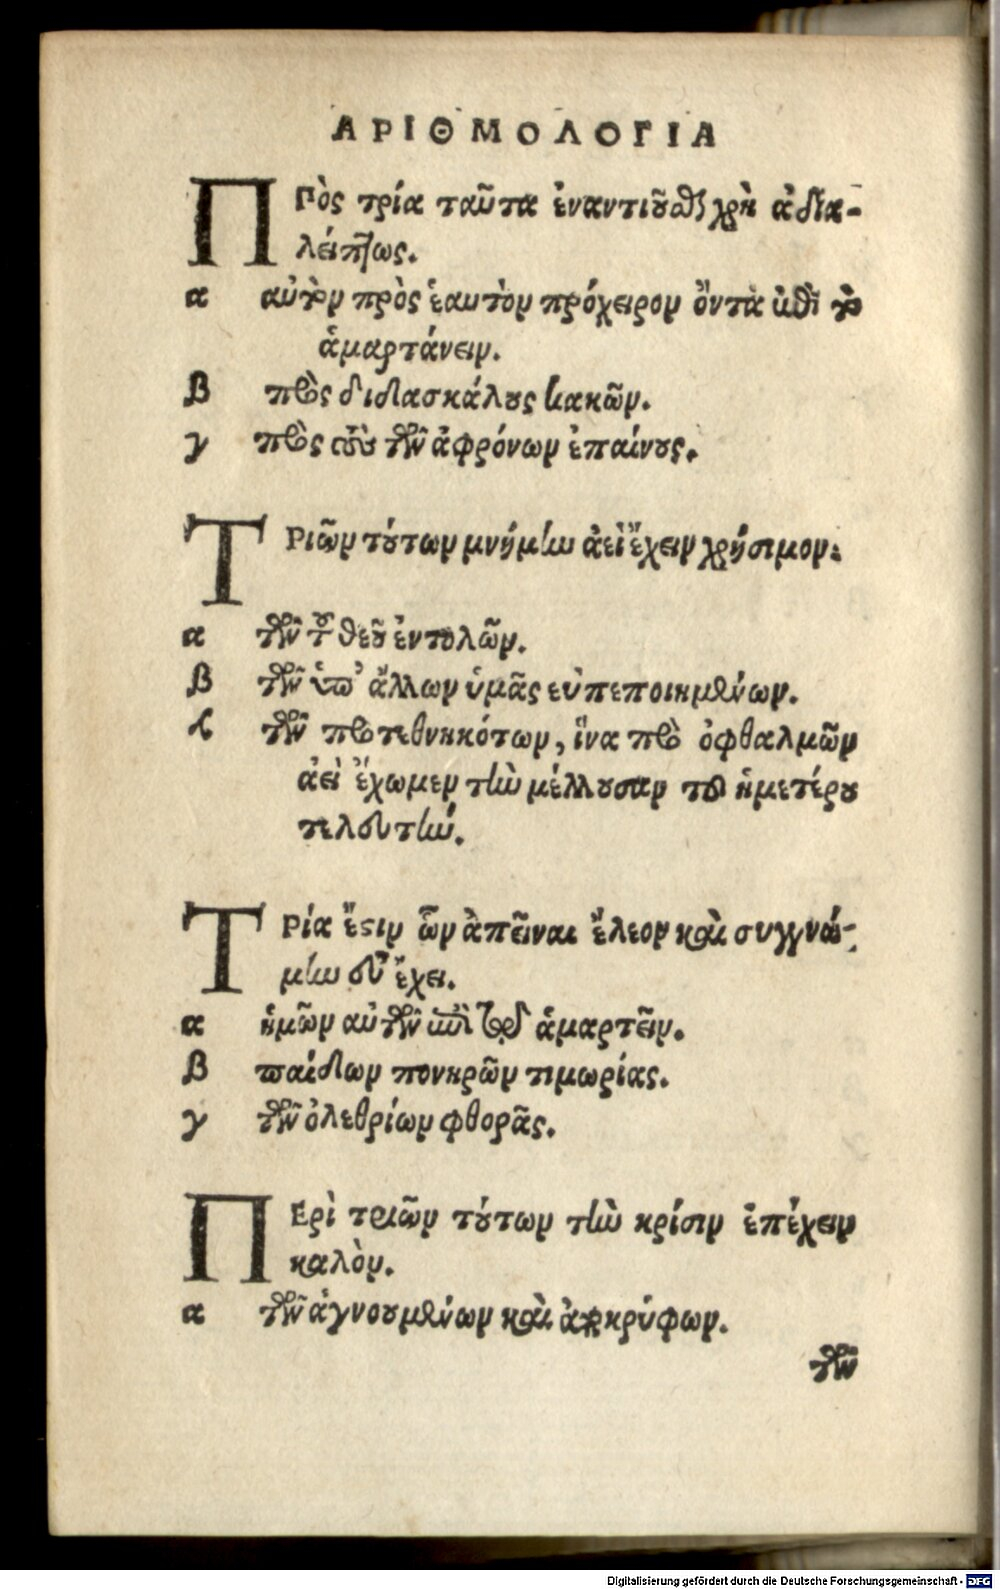 ΑΡΙΘΜΟΛΟΓΙΑ
ΠΡὸς τρία ταῦτα ἐναντιοῦσθαι χρὴ ἀδια-
λείπτως.
α αὐτὸν πρὸς ἑαυτὸν πρόχειρον ὄντα ἐπὶ τὸ
ἁμαρτάνειν.
β πρὸς διδασκάλους κακῶν.
γ πρὸς τοὺς τῶν ἀφρόνων ἐπαίνους.
ΤΡιῶν τούτων μνήμην ἀεὶ ἔχειν χρήσιμον:
α τῶν τοῦ θεοῦ ἐντολῶν.
β τῶν ὑπ’ ἄλλων ὑμᾶς εὐπεποιημένων.
τῶν προτεθνηκότων, ἵνα πρὸ ὀφθαλμῶν
ἀεὶ ἔχωμεν τὴν μέλλουσαν τοῦ ἡμετέρου
τελευτήν.
ΤΡία ἔστιν ὧν ἀπεῖναι ἔλεον καὶ συγγνώ-
μην οὐ ἔχει.
α ἡμῶν αὐτῶν ἁμαρτεῖν.
β παίδων πονηρῶν τιμωρίας.
γ τῶν ὀλεθρίων φθορᾶς.
ΠΕρὶ τριῶν τούτων τὴν κρίσιν ἐπέχειν
καλὸν.
α τῶν ἀγνοουμένων καὶ ἀποκρύφων.
τῶν
Digitalisierung gefördert durch die Deutsche Forschungsgemeinschaft - DFG